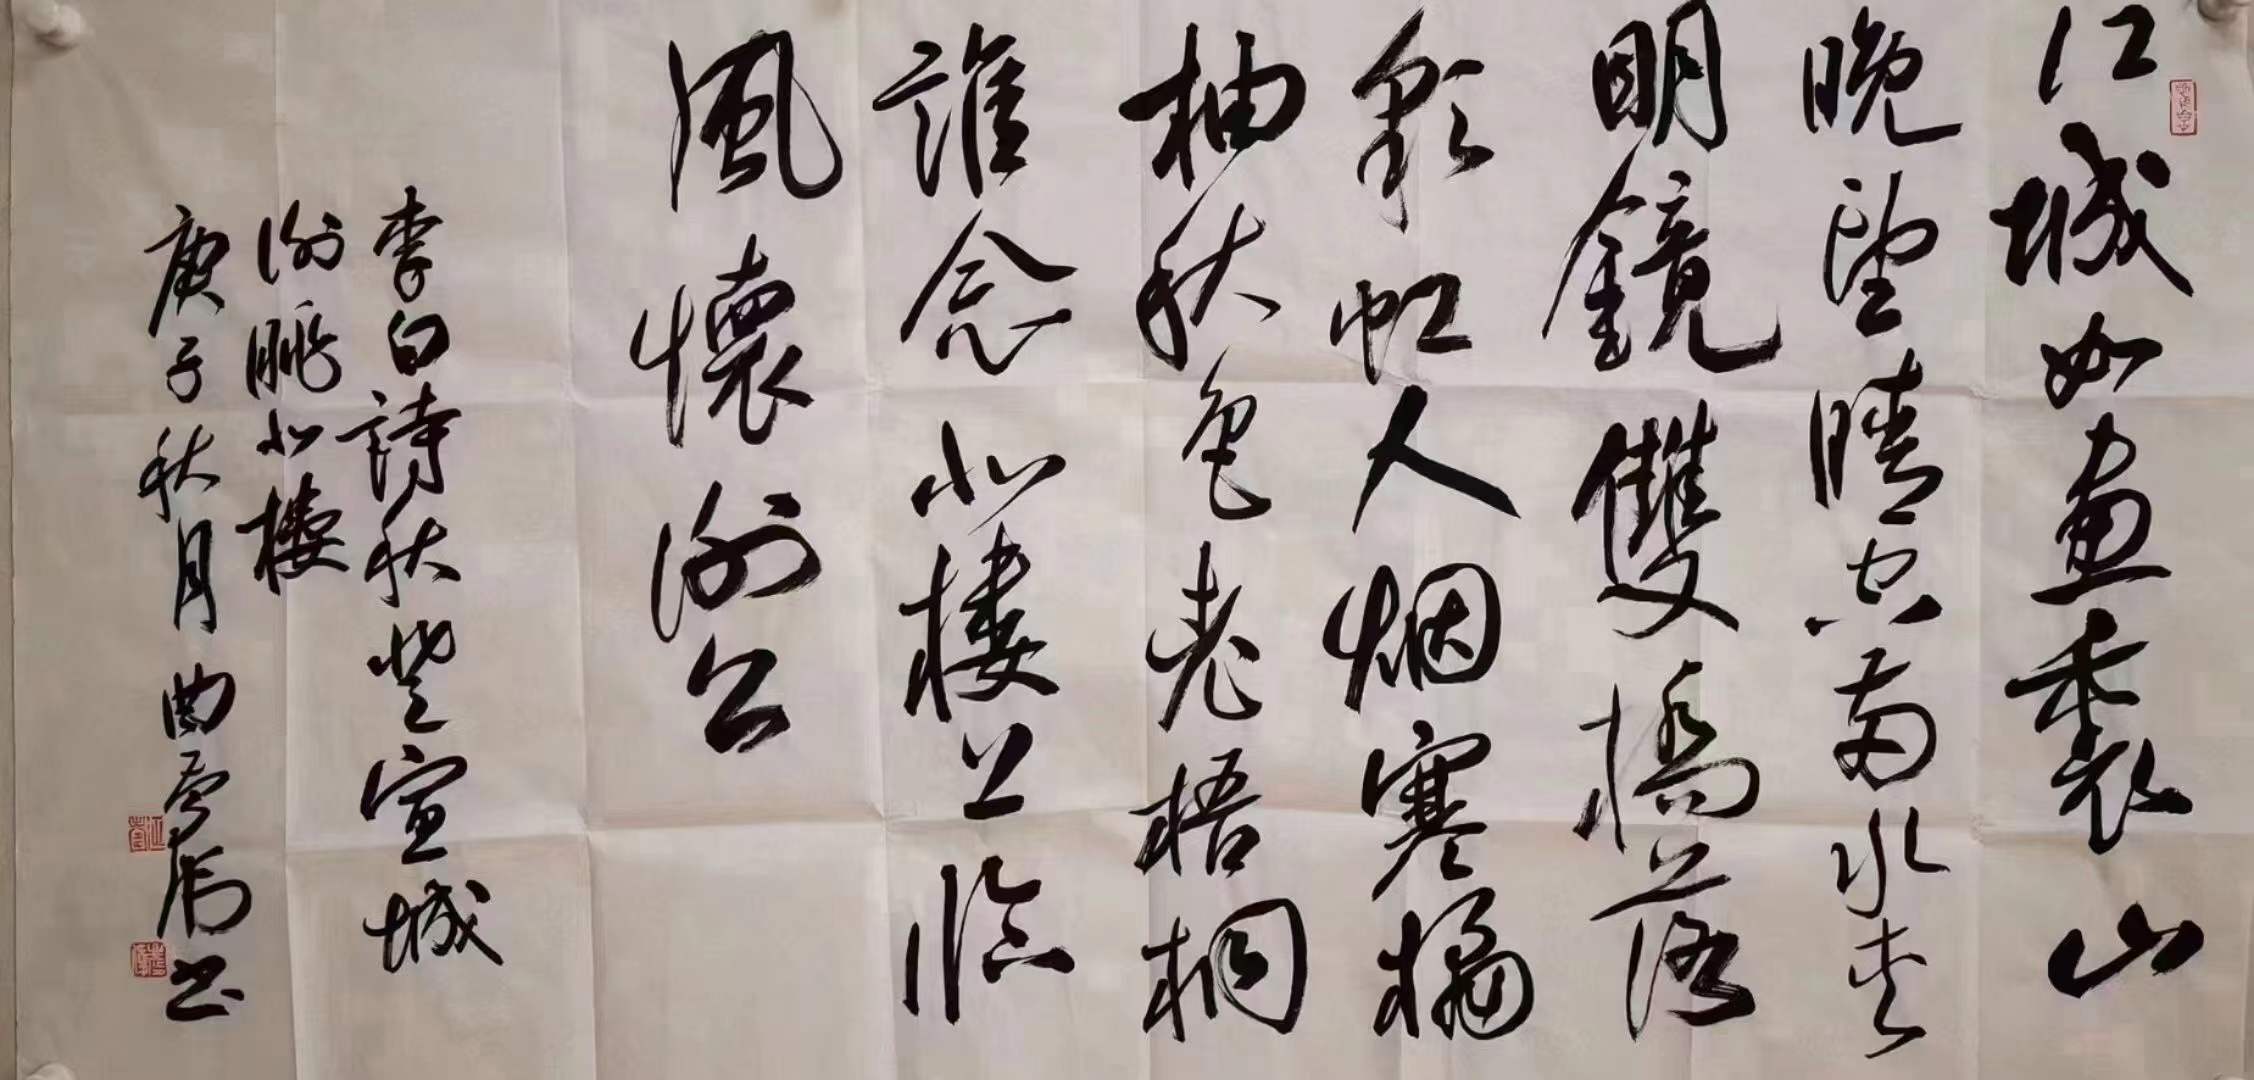 江城如畫裏山
晚望晴空兩水夾
明鏡雙橋落
彩虹人烟寒橘
柚秋色老梧桐
誰念北樓上臨
風懷謝公
李白詩秋登宣城
謝朓北樓
庚子秋月曲书